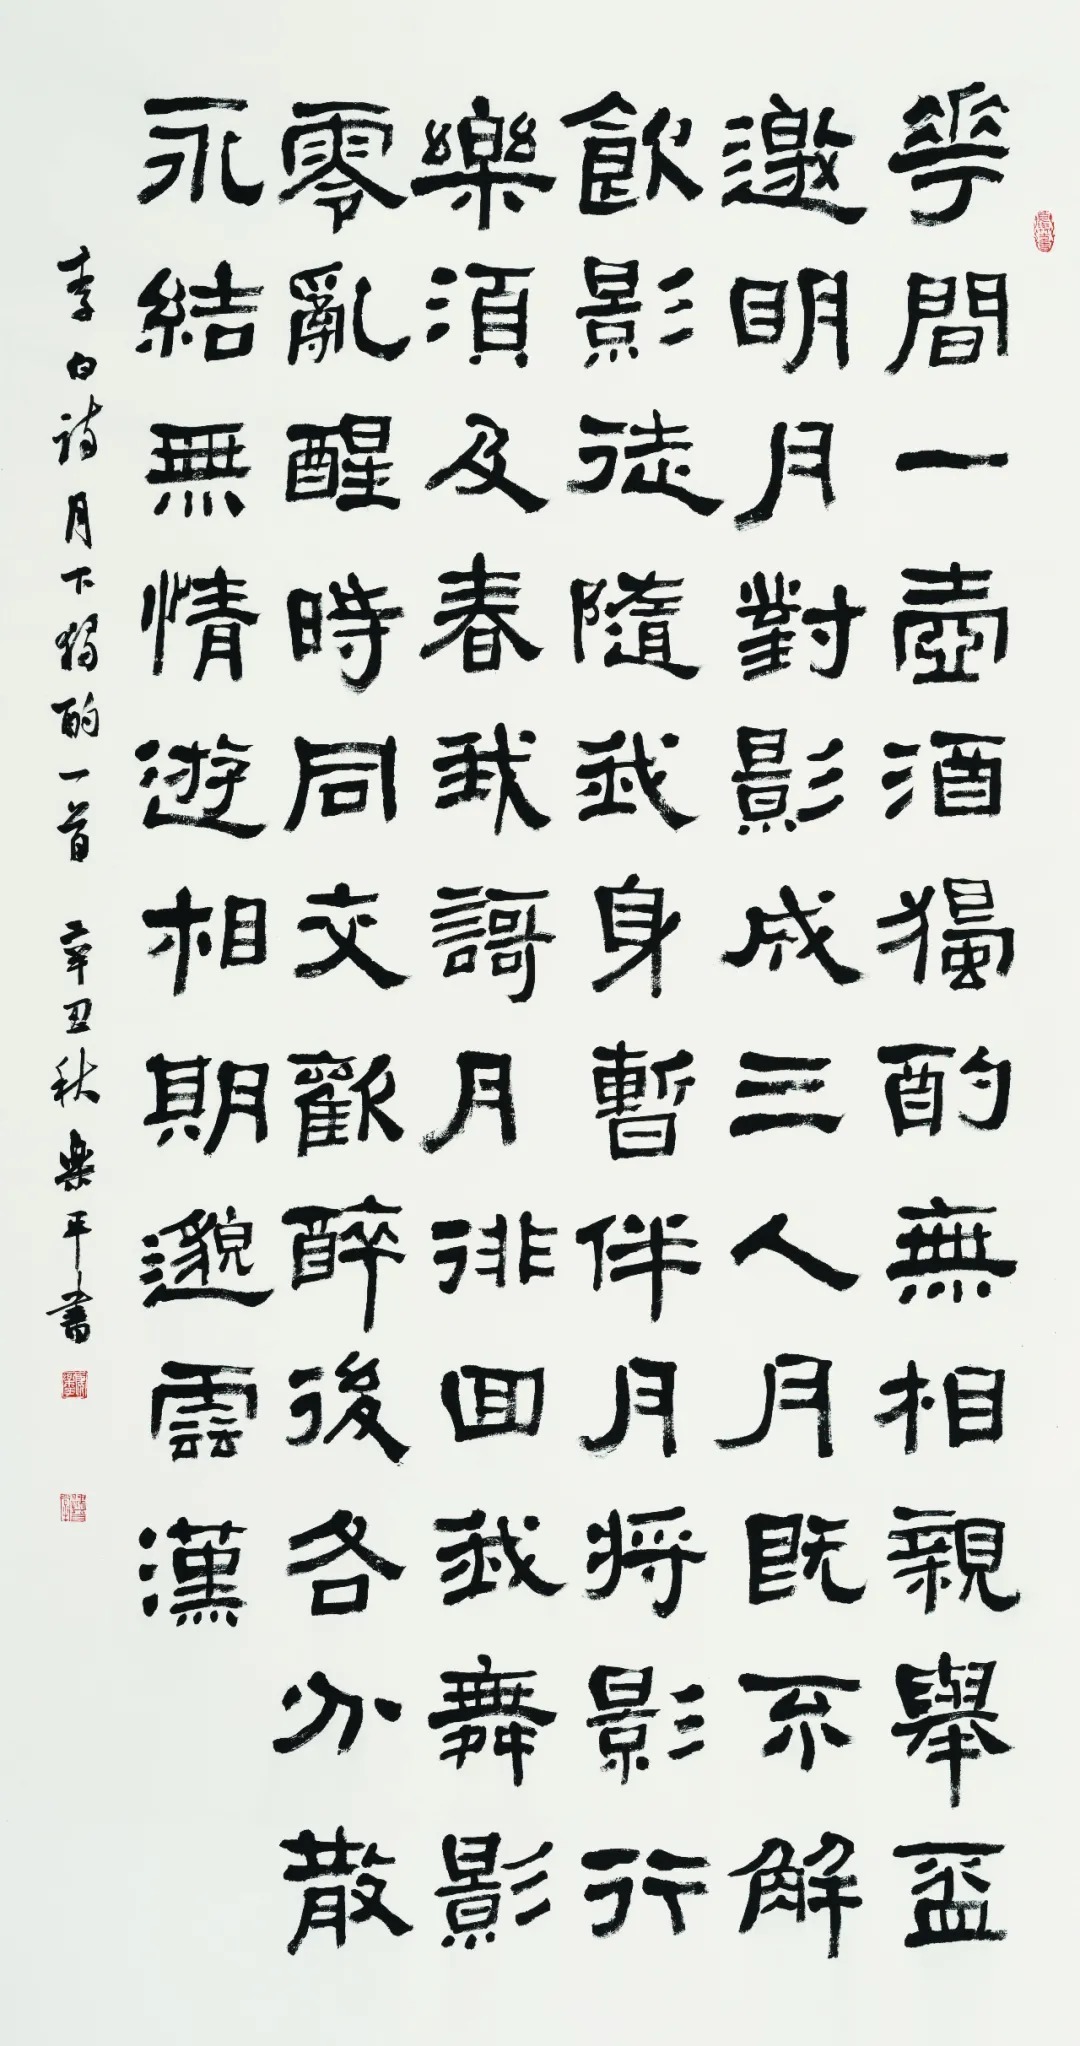 花間一壺酒獨酌無相親舉盃
邀明月對影成三人月既不解
飲影徒隨我身暫伴月將影行
樂須及春我謌月徘回我舞影
零亂醒時同交歡醉後各分散
永結無情遊相期邈雲漢
李白詩月下獨酌一首 辛丑秋樂平書